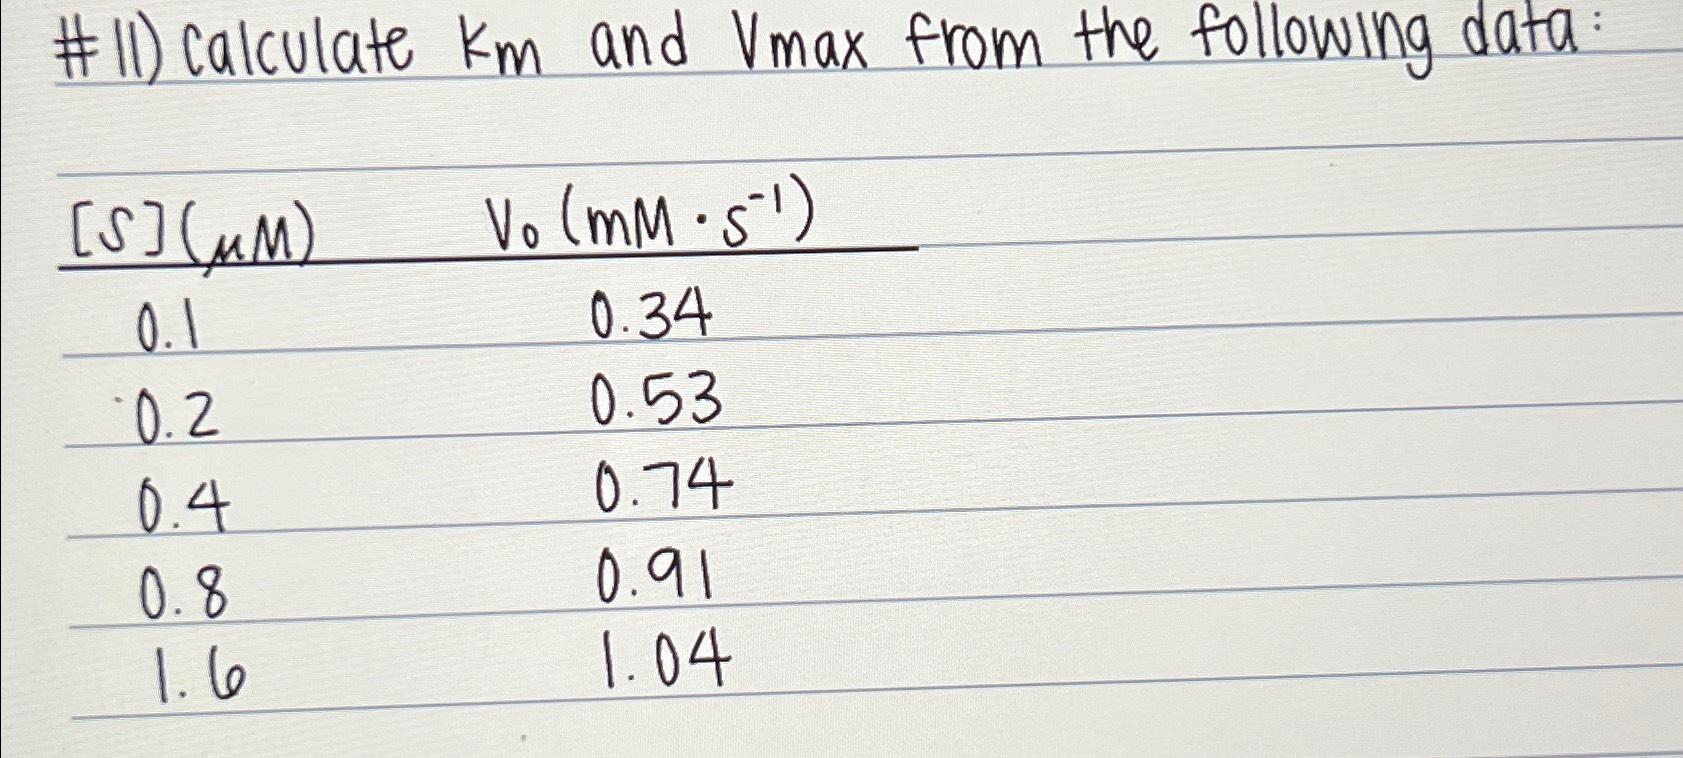 #11) Calculate Km and Vmax from the following data:
[S](μM) Vo (mM · s⁻¹)
0.1 0.34
0.2 0.53
0.4 0.74
0.8 0.91
1.6 1.04